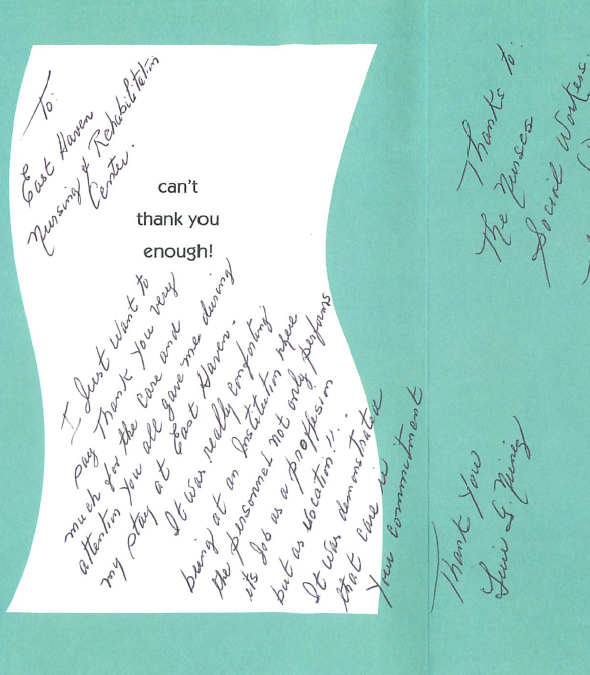 To:
East Haven
Nursing & Rehabilitation
Center.
can't
thank you
enough!
I Just Want to
say Thank You very
much for the care and
attention You all gave me during
my stay at East Haven.
It was really comforting
being at an Institution where
the personnel not only performs
its Job as a proffesion
but as vocation!!..
It was demonstrated
that care in
Your commitment
Thanks to:
The Nurses
Social Workers.
Thank You